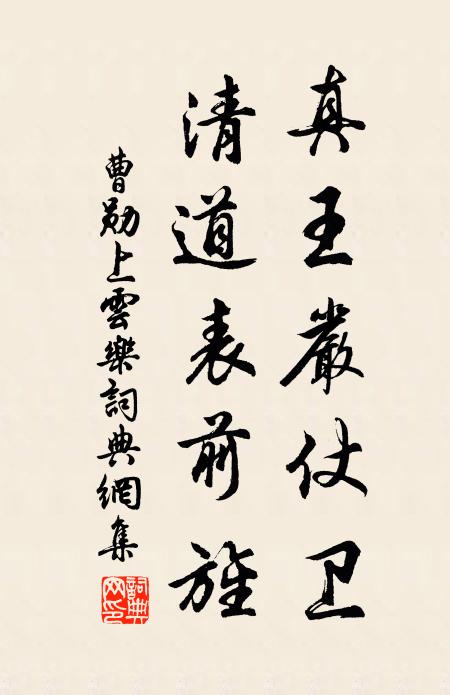 真王嚴仗卫
清道表前旌
曹勋上雲樂詞典網集
詞典网印